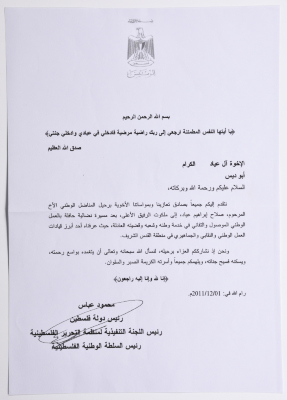 بسم الله الرحمن الرحيم
﴿يا أيتها النفس المطمئنة ارجعي إلى ربك راضية مرضية فادخلي في عبادي وادخلي جنتي﴾
صدق الله العظيم
الإخوة آل عياد الكرام
أبو ديس
السلام عليكم ورحمة الله وبركاته،
نتقدم إليكم جميعاً بصادق تعازينا ومواساتنا الأخوية برحيل المناضل الوطني الأخ
المرحوم، صلاح إبراهيم عياد، إلى ملكوت الرفيق الأعلى، بعد مسيرة نضالية حافلة بالعمل
الوطني الموصول والتفاني في خدمة وطنه وشعبه وقضيته العادلة، حيث عرفناه أحد أبرز قيادات
العمل الوطني والنقابي والجماهيري في منطقة القدس الشريف.
ونحن إذ نشاركم العزاء برحيله، لنسأل الله سبحانه وتعالى أن يتغمده بواسع رحمته،
ويسكنه فسيح جناته، ويلهمكم جميعاً وأسرته الكريمة الصبر والسلوان.
﴿إنا لله وإنا إليه راجعون﴾
رام الله في: 2011/12/01م.
محمود عباس
رئيس دولة فلسطين
رئيس اللجنة التنفيذية لمنظمة التحرير الفلسطينية
رئيس السلطة الوطنية الفلسطينية